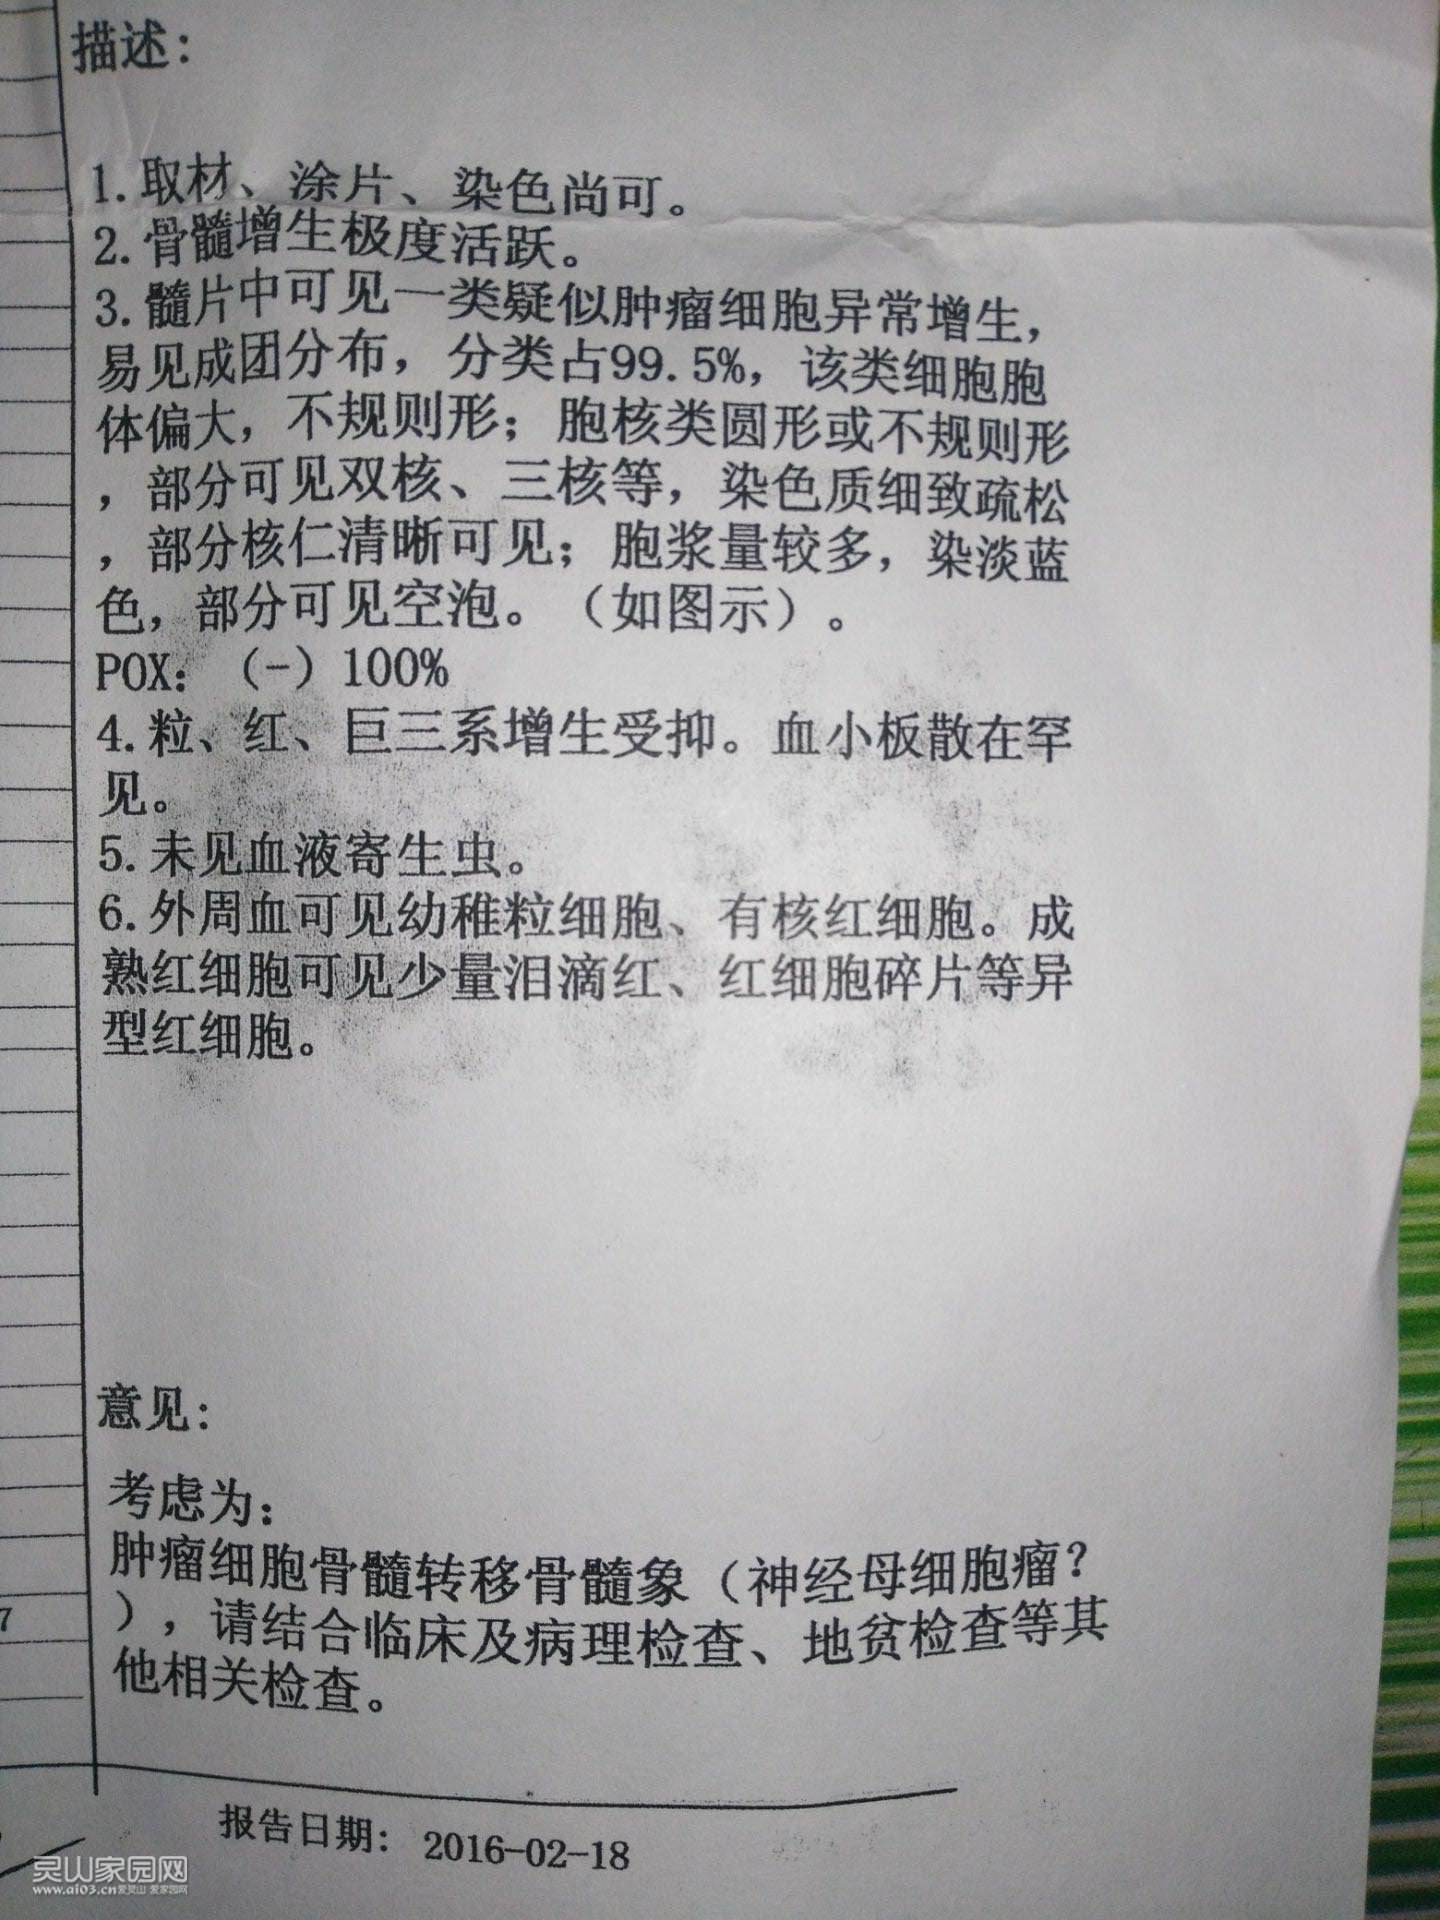 描述：
1.取材、涂片、染色尚可。
2.骨髓增生极度活跃。
3.髓片中可见一类疑似肿瘤细胞异常增生，
易见成团分布，分类占99.5%，该类细胞胞
体偏大，不规则形；胞核类圆形或不规则形
，部分可见双核、三核等，染色质细致疏松
，部分核仁清晰可见；胞浆量较多，染淡蓝
色，部分可见空泡。（如图示）。
POX：（-）100%
4.粒、红、巨三系增生受抑。血小板散在罕
见。
5.未见血液寄生虫。
6.外周血可见幼稚粒细胞、有核红细胞。成
熟红细胞可见少量泪滴红、红细胞碎片等异
型红细胞。
意见：
考虑为：
肿瘤细胞骨髓转移骨髓象（神经母细胞瘤？
），请结合临床及病理检查、地贫检查等其
他相关检查。
7
报告日期： 2016-02-18
灵山家园网
www.ai03.cn爱灵山 爱家园网